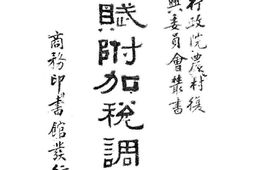 行政院農村復
興委員會叢書
賦附加稅調
商務印書館發行